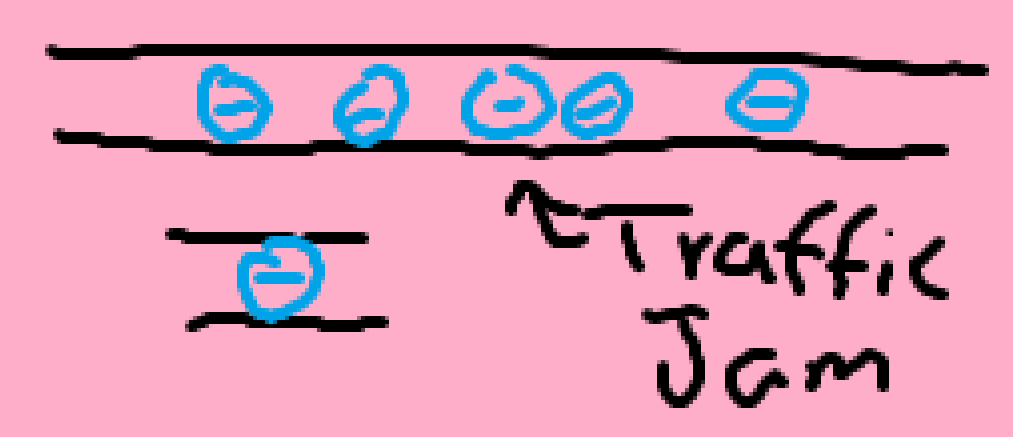 Traffic
Jam